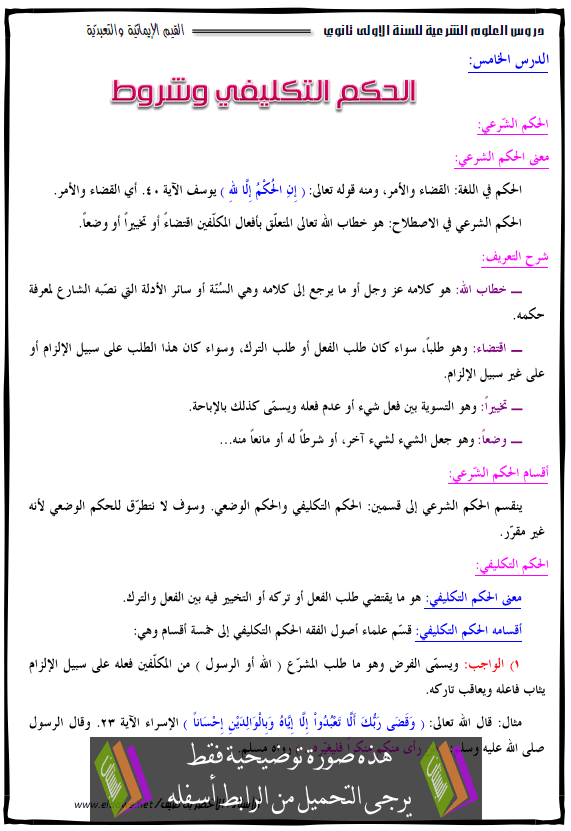 دروس العلوم الشرعية للسنة الاولى ثانوي القيم الإيمانية والتعبديّة
الدرس الخامس:
الحكم التكليفي وشروط
الحكم الشّرعي:
معنى الحكم الشرعي:
الحكم في اللغة: القضاء والأمر، ومنه قوله تعالى: ﴿ إِنِ الْحُكْمُ إِلَّا لِلهِ ﴾ يوسف الآية ٤٠. أي القضاء والأمر.
الحكم الشرعي في الاصطلاح: هو خطاب الله تعالى المتعلّق بأفعال المكلّفين اقتضاءً أو تخييراً أو وضعاً.
شرح التعريف:
ــ خطاب الله: هو كلامه عز وجل أو ما يرجع إلى كلامه وهي السُنّة أو سائر الأدلة التي نصّبه الشارع لمعرفة
حكمه.
ــ اقتضاء: وهو طلباً، سواء كان طلب الفعل أو طلب الترك، وسواء كان هذا الطلب على سبيل الإلزام أو
على غير سبيل الإلزام.
ــ تخييراً: وهو التسوية بين فعل شيء أو عدم فعله ويسمّى كذلك بالإباحة.
ــ وضعاً: وهو جعل الشيء لشيء آخر، أو شرطاً له أو مانعاً منه...
أقسام الحكم الشّرعي:
ينقسم الحكم الشرعي إلى قسمين: الحكم التكليفي والحكم الوضعي. وسوف لا نتطرّق للحكم الوضعي لأنه
غير مقرّر.
الحكم التكليفي:
معنى الحكم التكليفي: هو ما يقتضي طلب الفعل أو تركه أو التخيير فيه بين الفعل والترك.
أقسامه الحكم التكليفي: قسّم علماء أصول الفقه الحكم التكليفي إلى خمسة أقسام وهي:
١) الواجب: ويسمّى الفرض وهو ما طلب المشرّع ( الله أو الرسول ) من المكلّفين فعله على سبيل الإلزام
يثاب فاعله ويعاقب تاركه.
مثال: قال الله تعالى: ﴿ وَقَضَى رَبُّكَ أَلَّا تَعْبُدُواْ إِلَّا إِيَّاهُ وَبِالْوَالِدَيْنِ إِحْسَاناً ﴾ الإسراء الآية ٢٣. وقال الرسول
صلى الله عليه وسلم: رأى منكم منكراً فليغيّره مسلم.
هذه صورة توضيحية فقط
يرجى التحميل من الرابط أسفله